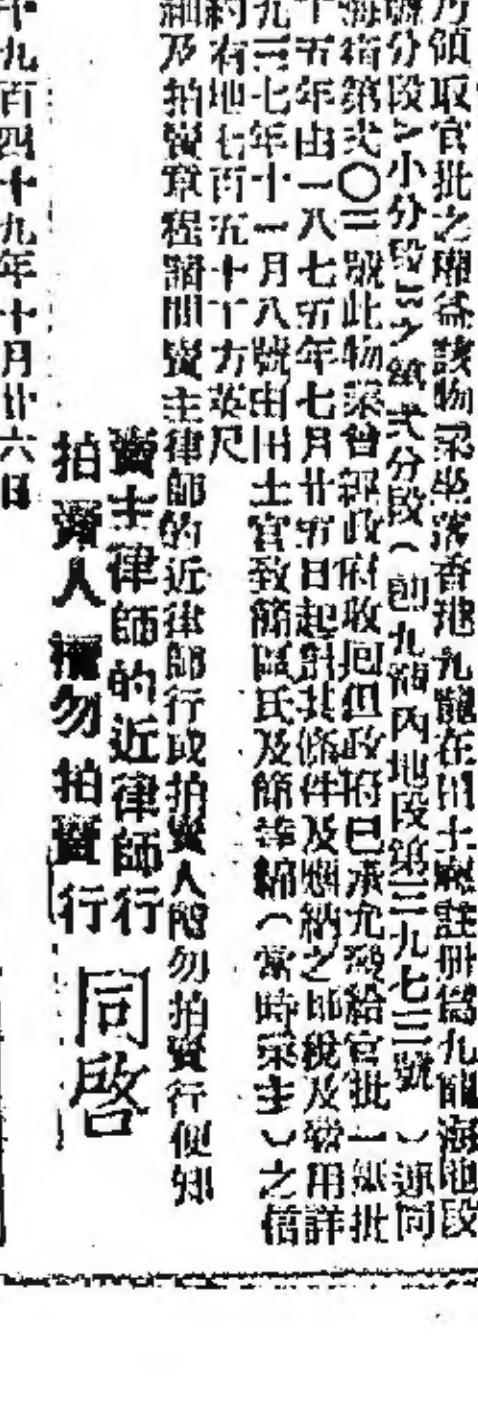 乃領取官批之權益該物業坐落香港九龍在田土廳註冊為九龍海地段
號分段之小分段三之第弍分段(即九龍內地段第三九七三號)連同
海褙第弍〇三號此物業曾經政府收囘但政府已承允發給官批一紙批
十五年由一八七五年七月廿五日起計其條件及應納之地稅及費用詳
九三七年十一月八號由田土官致簡區氏及簡葉綿(當時業主)之信
約有地七百五十丁方英尺
細及拍賣章程請問賣主律師的近律師行或拍賣人隆勿拍賣行便知
賣主律師的近律師行
拍賣人 勿拍賣行
同啓
十九百四十九年十月廿六日